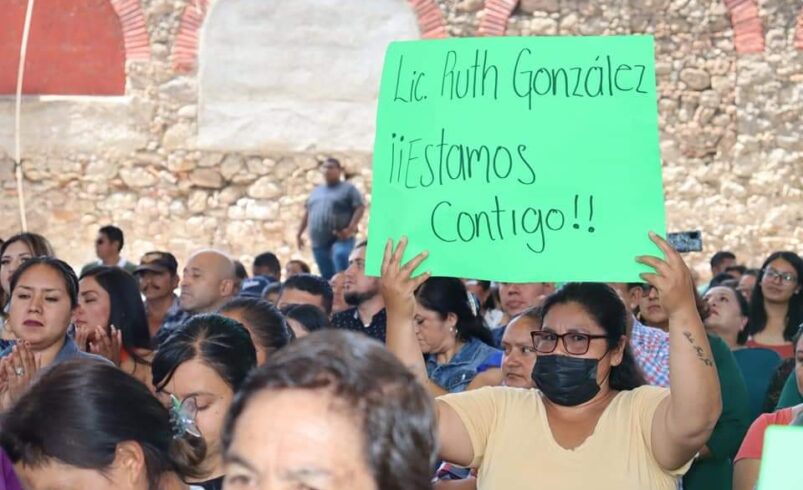 Lic. Ruth González
¡¡Estamos
Contigo!!